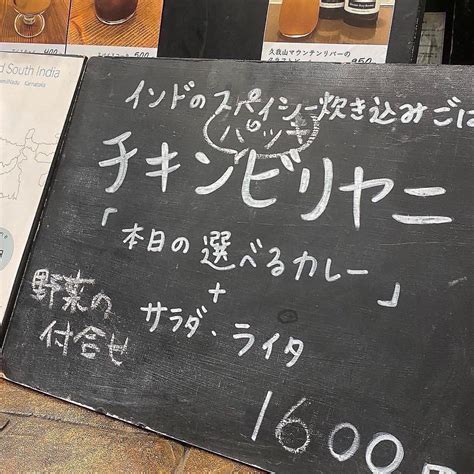 400
500
久我山マウンテンリバーの
950
d South India
Karnataka
インドのスパイシー炊き込みごは
パッキ
チキンビリヤニ
「本日の選べるカレー」
+
サラダ・ライタ
野菜の
付合せ
1600円